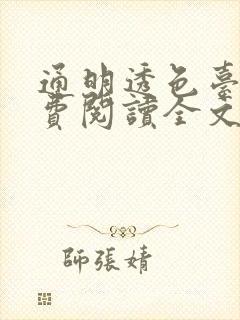 通明透色臺
費閱讀全文
師張婧